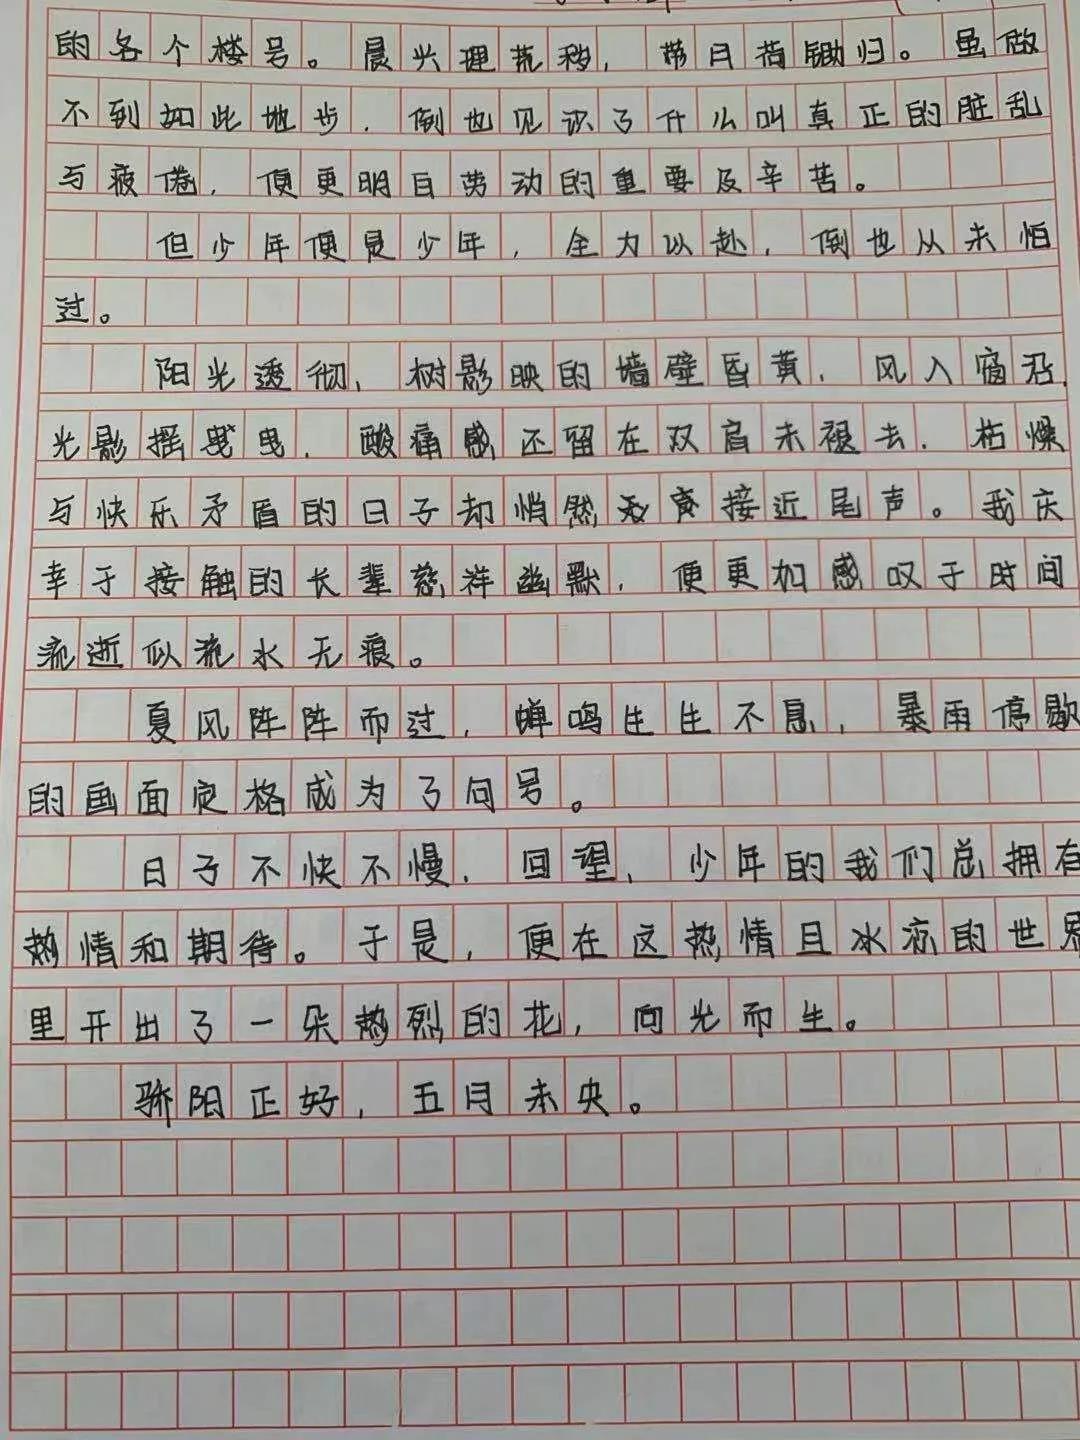 的各个楼号。晨兴理荒秽，带月荷锄归。虽做
不到如此地步，倒也见识了什么叫真正的脏乱
与疲倦，便更明白劳动的重要及辛苦。
但少年便是少年，全力以赴，倒也从未怕
过。
阳光透彻，树影映的墙壁昏黄，风入窗沿，
光影摇曳，酸痛感还留在双肩未褪去，枯燥
与快乐矛盾的日子却悄然无声接近尾声。我庆
幸于接触的长辈慈祥幽默，便更加感叹于时间
流逝似流水无痕。
夏风阵阵而过，蝉鸣生生不息，暴雨停歇
的画面定格成为了问号。
日子不快不慢，回望，少年的我们总拥有
热情和期待。于是，便在这热情且冰凉的世界
里开出了一朵热烈的花，向光而生。
骄阳正好，五月未央。